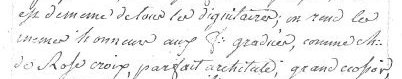 est de meme de tous les dignitaires, on rend les
memes honneurs aux gradués, comme ch.
de Rose croix, parfait architecte, grand ecossois,